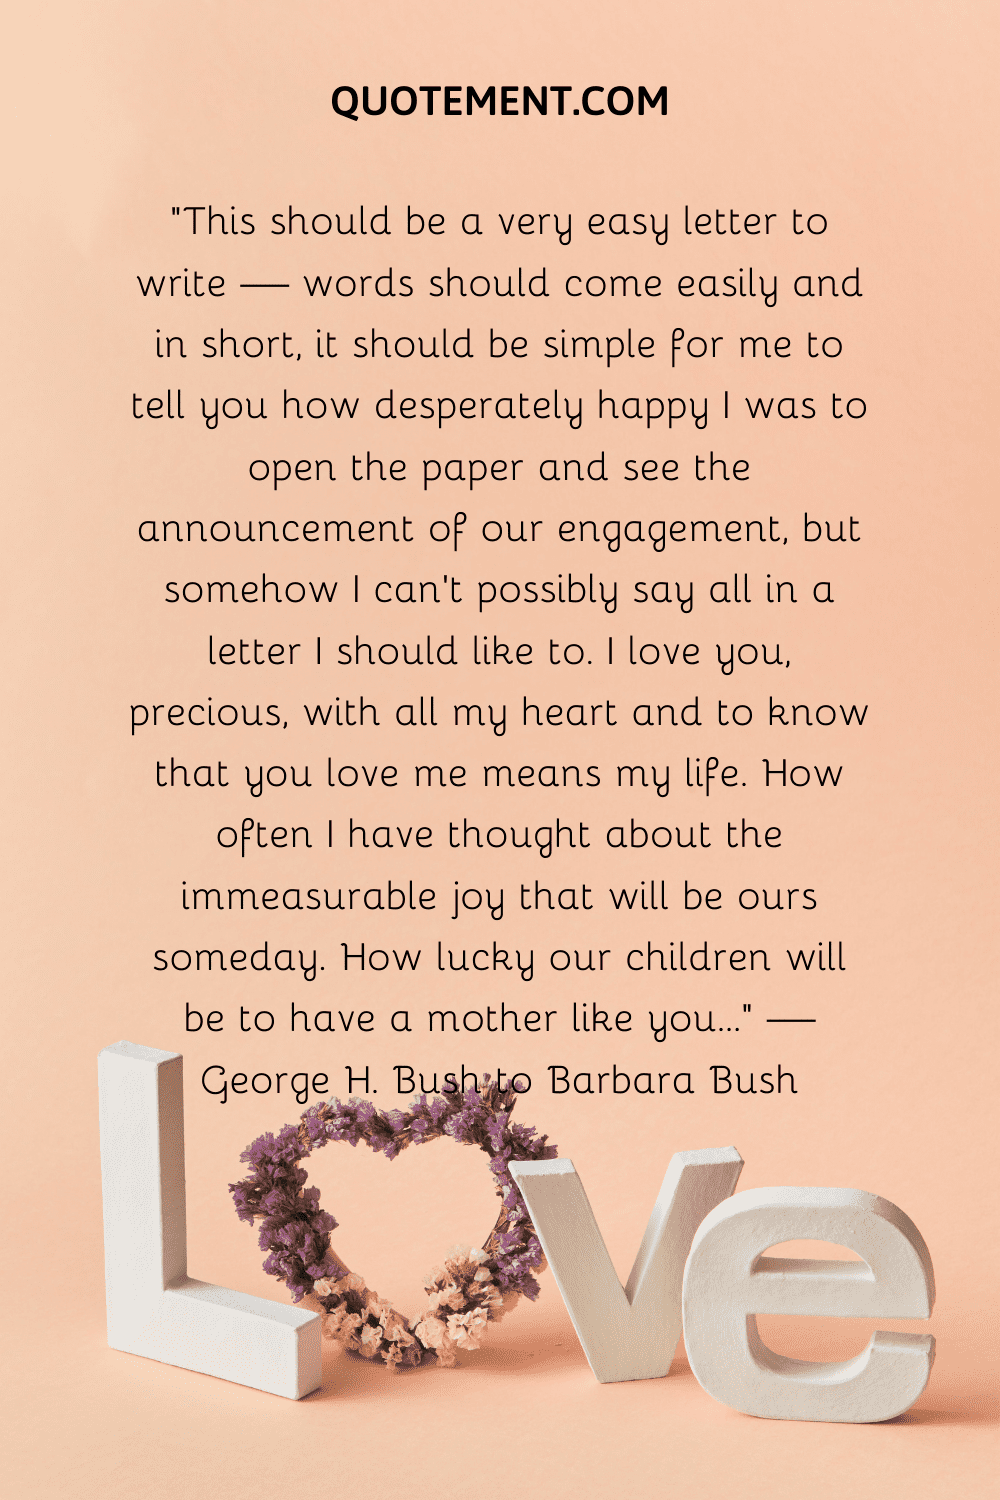 QUOTEMENT.COM
"This should be a very easy letter to
write — words should come easily and
in short, it should be simple for me to
tell you how desperately happy I was to
open the paper and see the
announcement of our engagement, but
somehow I can't possibly say all in a
letter I should like to. I love you,
precious, with all my heart and to know
that you love me means my life. How
often I have thought about the
immeasurable joy that will be ours
someday. How lucky our children will
be to have a mother like you..." —
George H. Bush to Barbara Bush
Love